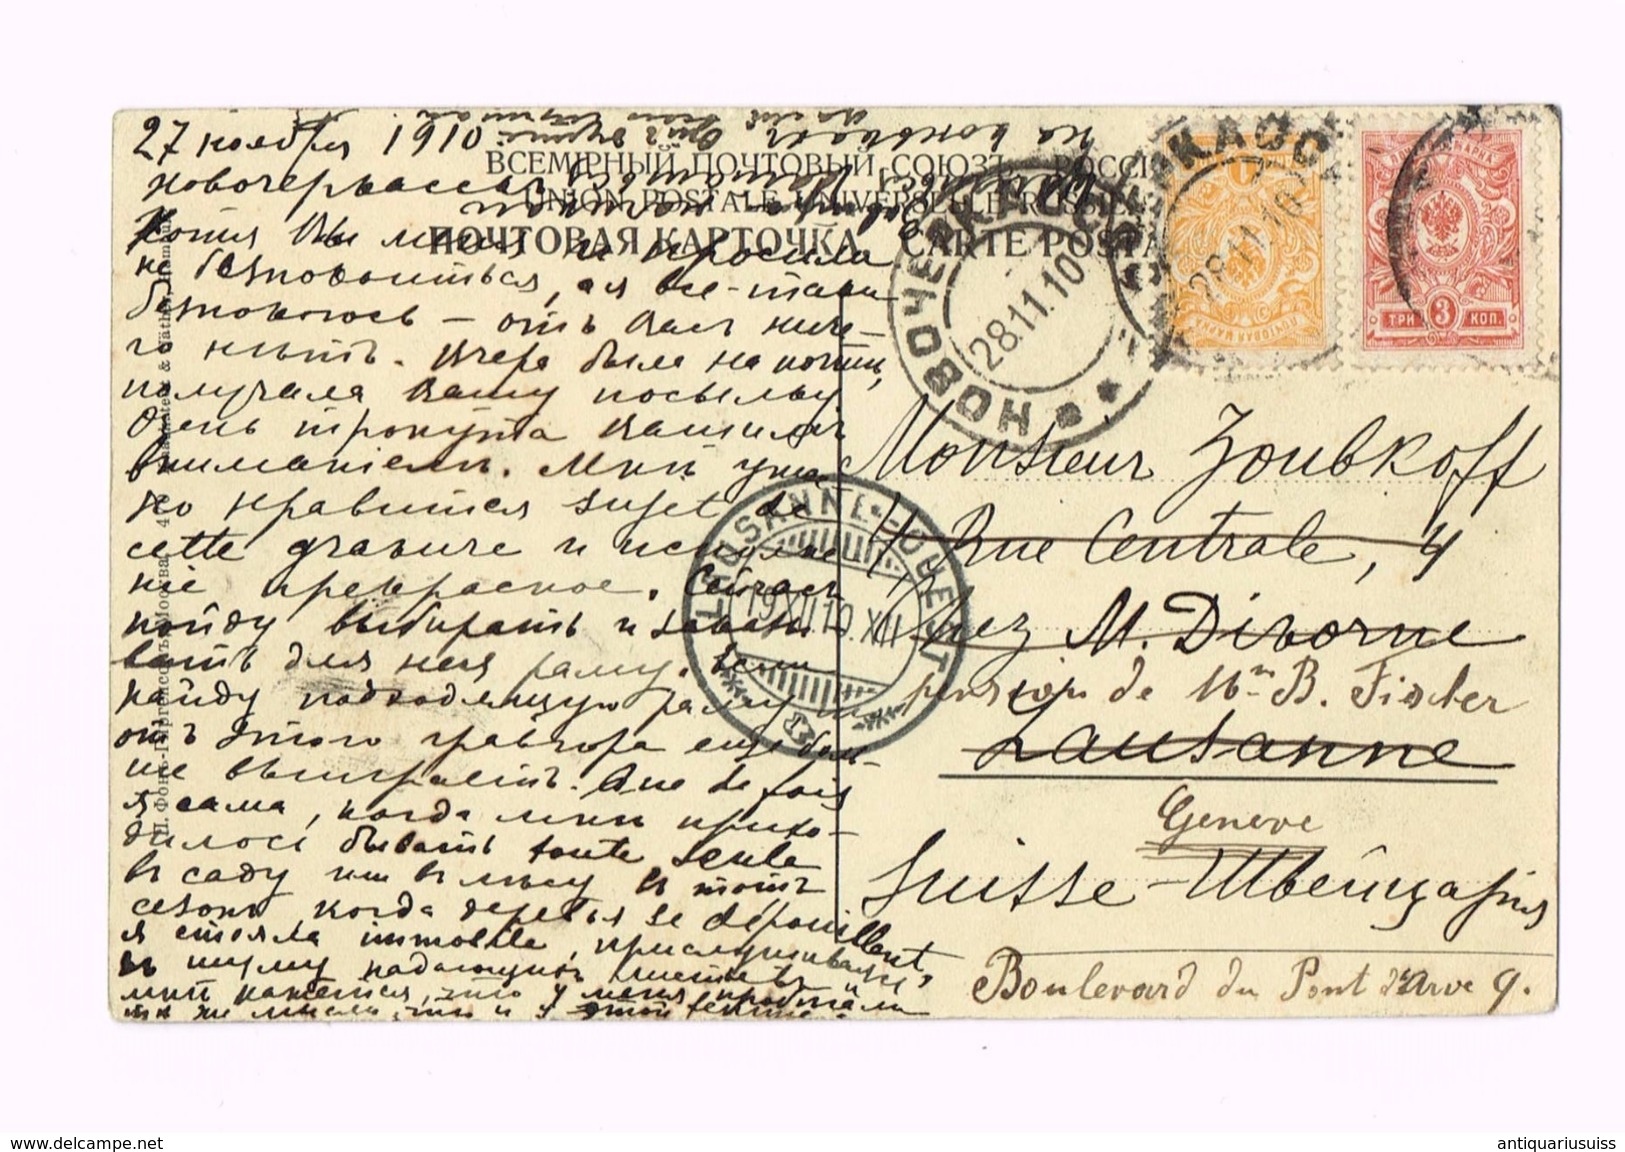 27 ноября 1910
Новочеркасскъ
ВСЕМІРНЫЙ ПОЧТОВЫЙ СОЮЗЪ. РОССІ
UNION POSTALE UNIVERSELLE RUSSIE
ПОЧТОВАЯ КАРТОЧКА CARTE POSTA
Хотя Вы меня и просила
не безпокоиться, а я все-таки
безпокоюсь — отъ Васъ ниче-
го нѣтъ. Вчера была на почтѣ,
получала Вашу посылку
Очень тронута Вашимъ
вниманіемъ. Мнѣ ужас
но нравится sujet de
cette gravure и исполне
ніе прекрасное. Сейчасъ
пойду выбирать и заказы-
вать для нея раму. Если
найду подходящую раму
отъ этого гравюра еще боль-
ше выиграетъ. Que de fois
я сама, когда мнѣ прихо-
дилось бывать toute seule
въ саду или въ лѣсу въ тотъ
сезонъ когда деревья se dépouillent,
я стояла immobile, прислушиваясь
къ шуму падающихъ листьевъ,
мнѣ кажется, что у меня
НОВОЧЕРКАССКЪ
28.11.10
28.11.10
ТРИ 3 КОП.
LAUSANNE
19 XII 10. XII
Monsieur Zoubkoff
4, Rue Centrale, 4
chez M. Divorne
pension de Mme B. Fischer
Lausanne
Genève
Suisse-Швейцарія
Boulevard du Pont d'Arve 9.
delcampe.net
antiquariusuiss